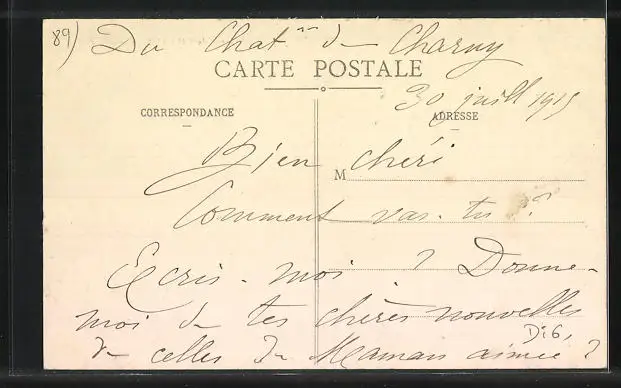 89) Du Chat^au de Charny
CARTE POSTALE
30 juill 1915
CORRESPONDANCE
ADRESSE
Bien chéri
M
Comment vas-tu ??
Ecris-moi ? Donne-
moi de tes chères nouvelles
Di6,
& celles de Maman aimée ?